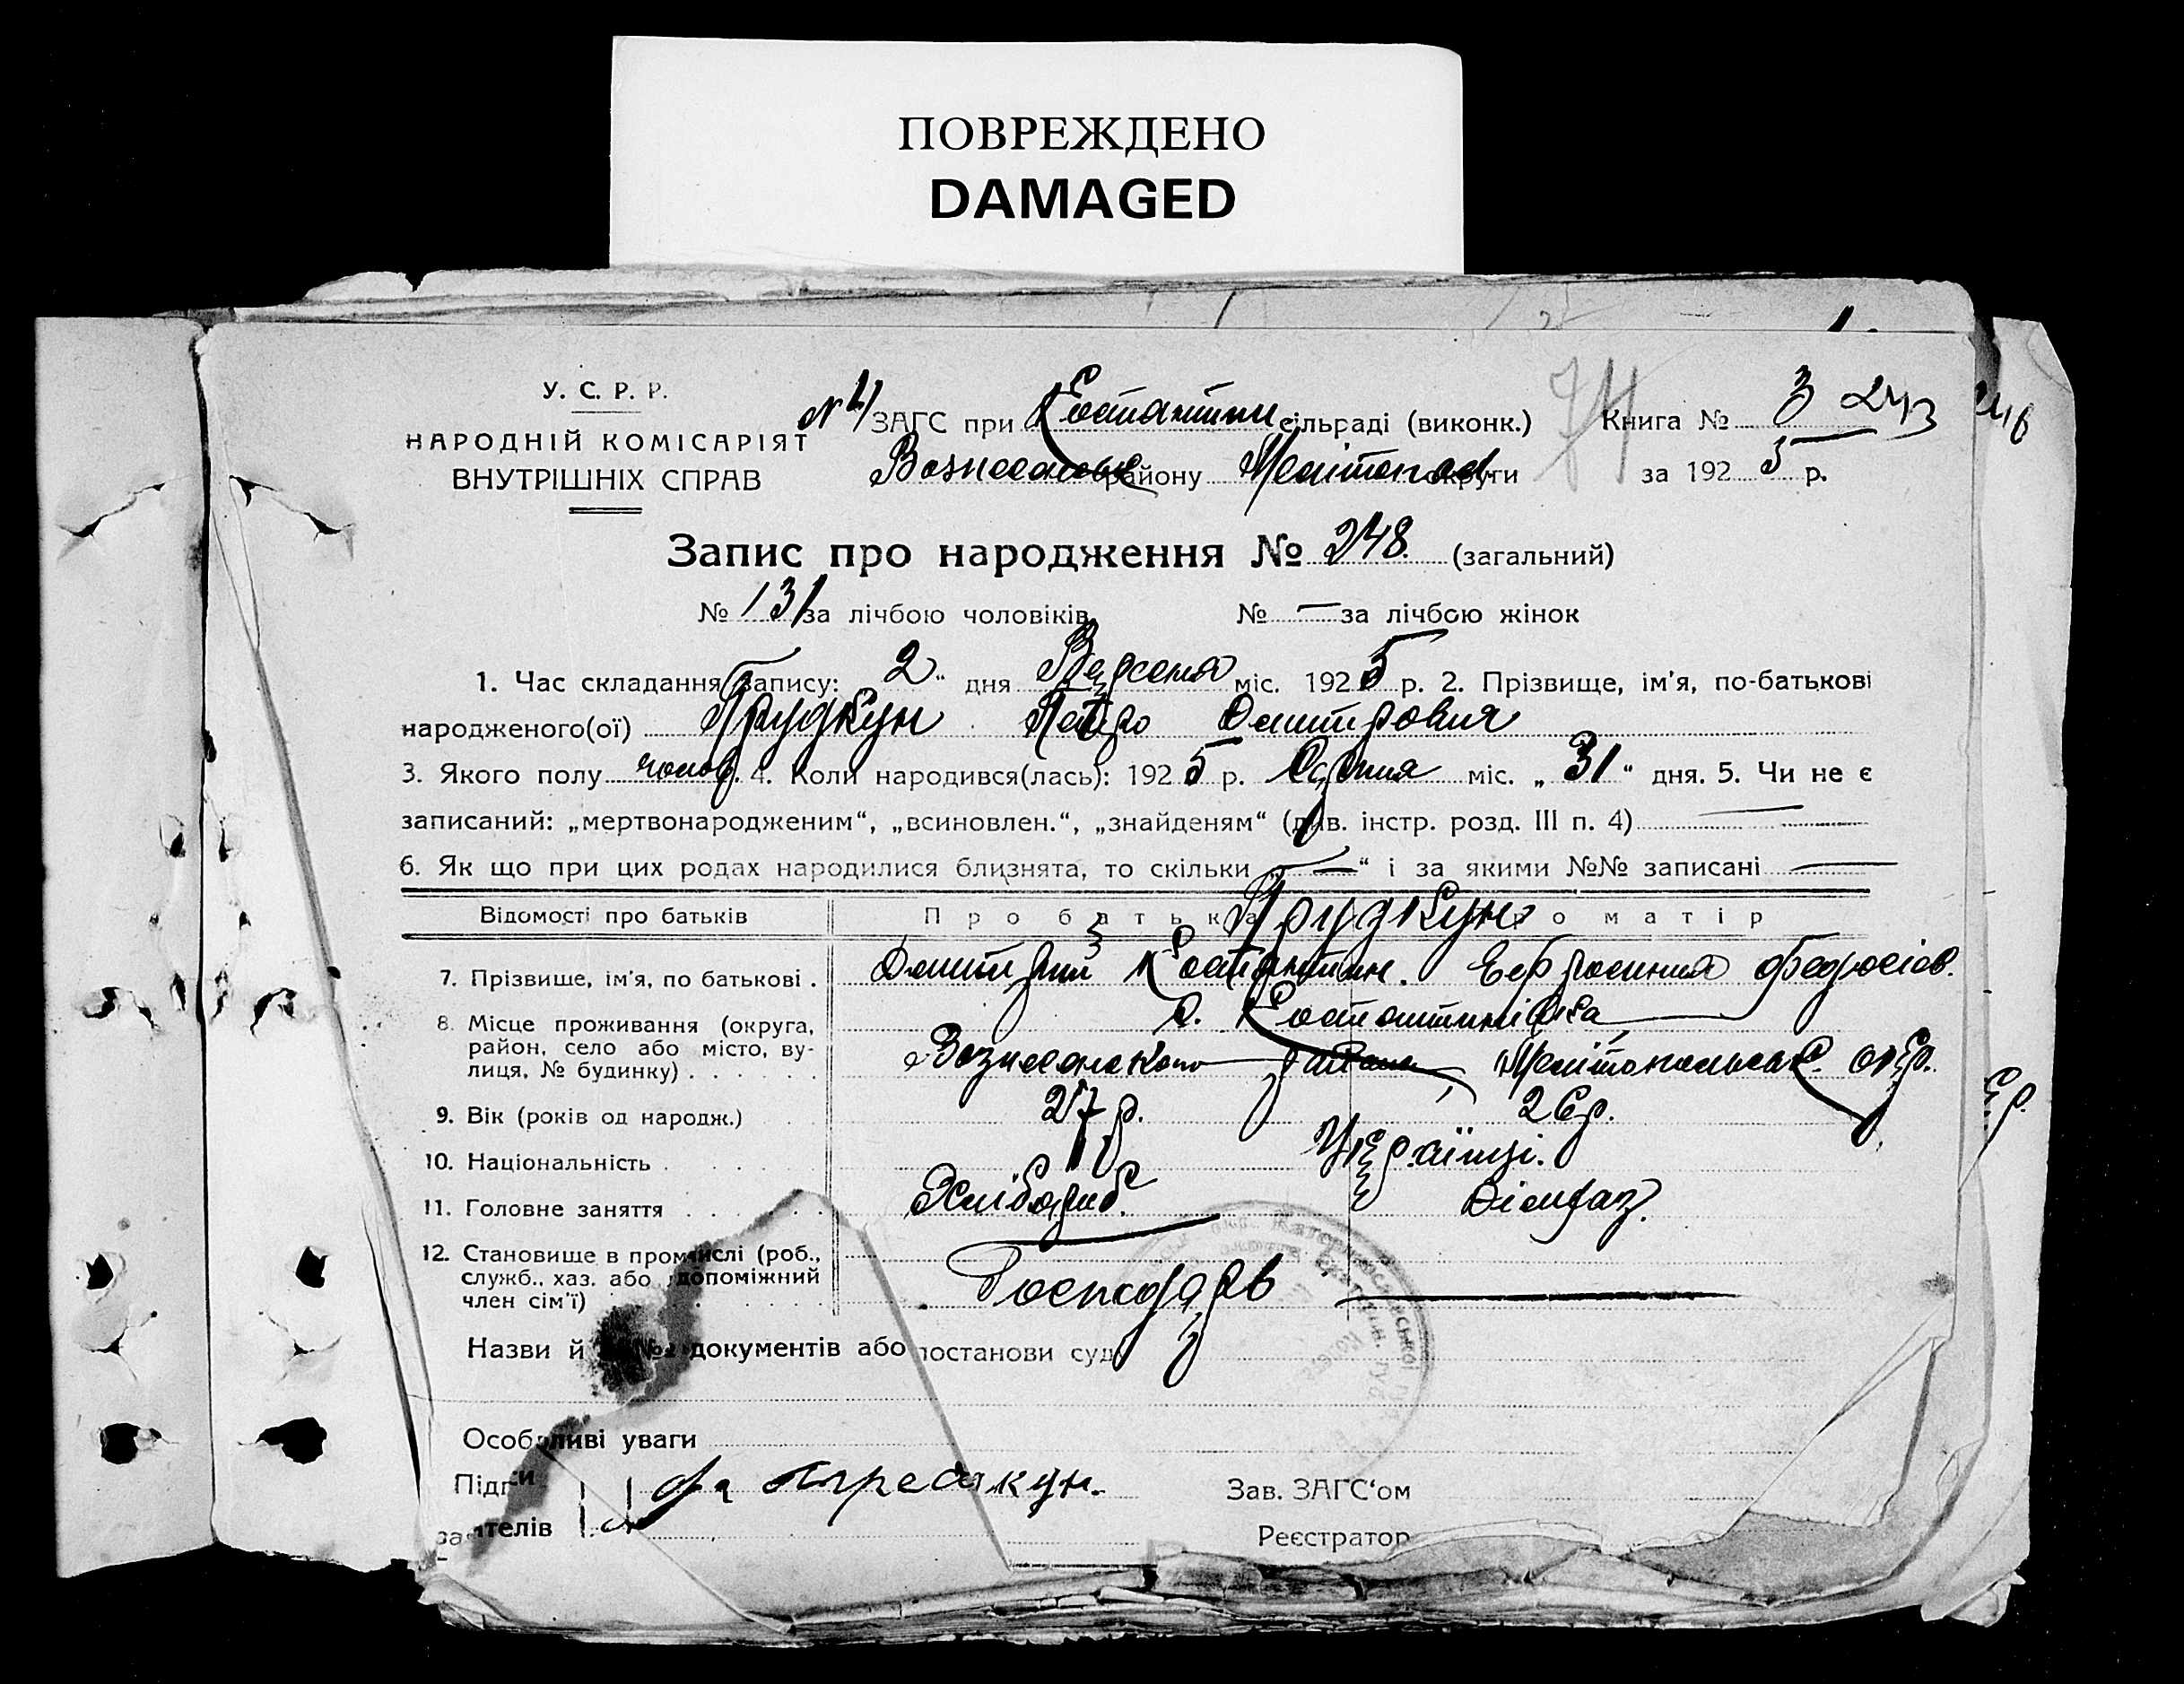 ПОВРЕЖДЕНО
DAMAGED
У. С. Р. Р.
НАРОДНІЙ КОМІСАРІЯТ
ВНУТРІШНІХ СПРАВ
ЗАГС при Костантин сільраді (виконк.)
Книга № 3 243
Вознесенськ району Мелітопол. округи
за 1925 р.
74
Запис про народження № 248. (загальний)
№ 131 за лічбою чоловіків № — за лічбою жінок
1. Час складання запису: 2 " дня Вересня міс. 1925 р. 2. Прізвище, ім'я, по-батькові
народженого(ої) Петро Дмитрович
3. Якого полу чолов. 4. Коли народився(лась): 1925 р. Серпня міс. „ 31 “ дня. 5. Чи не є
записаний: „мертвонародженим“, „всиновлен.“, „знайденям“ (див. інстр. розд. III п. 4)
6. Як що при цих родах народилися близнята, то скільки „ — “ і за якими №№ записані —
Відомості про батьків Про батька Про матір
7. Прізвише, ім'я, по батькові . Дмитрий Костянтин. Ефросиния Федосіов.
8. Місце проживання (округа,
район, село або місто, ву-
лиця, № будинку) . . . . . .
с. Костантинівка
Вознесенського района Мелітопольськ. окр.
9. Вік (років од народж.) 27 р. 26 р.
10. Національність . Українці.
11. Головне заняття Хлібороб. Домгаз.
12. Становище в промислі (роб.,
служб., хаз. або допоміжний
член сім'ї)
Господарь —
Назви й №№ документів або постанови суду
Особливі уваги
Підписи
заятелів
Зав. ЗАГС‘ом
Реєстратор